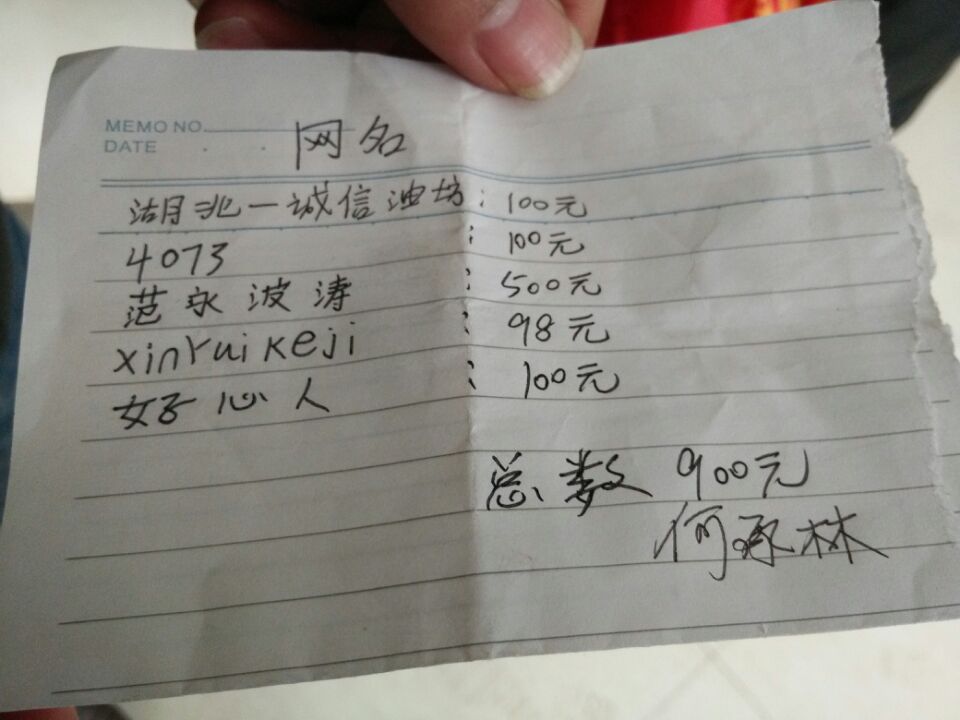 MEMO NO.
DATE
网名
湖兆一诚信油坊：100元
4073：100元
范永波涛：500元
xinYuiKeji：98元
好心人：100元
总数 900元
何承林